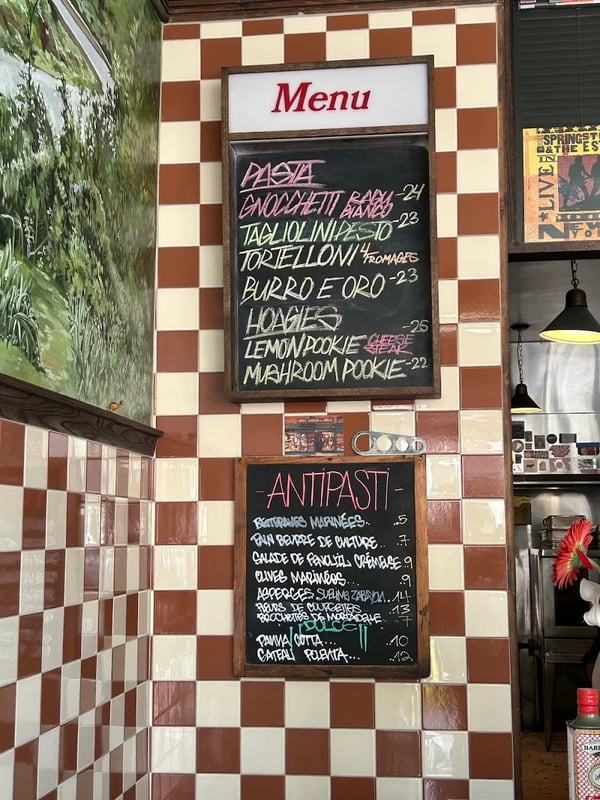 Menu
PASTA
GNOCCHETTI RAGU BIANCO -24
TAGLIOLINI PESTO -23
TORTELLONI 4 FROMAGES
BURRO E ORO -23
HOAGIES
LEMON POOKIE CHEESE STEAK -25
MUSHROOM POOKIE -22
-ANTIPASTI-
BETTERAVES MARINÉES.. .5
PAIN BEURRE DE CULTURE.. .7
SALADE DE FENOUIL CRÉMEUSE 9
OLIVES MARINÉES... .9
ASPERGES ..14
FLEURS DE COURGETTES ..13
BROCHETTES DE MORTADELLE 7
DOLCE
PANNA COTTA... ..10
GATEAU POLENTA... ..12
SPRINGST
& THE E ST
LIVE IN
N